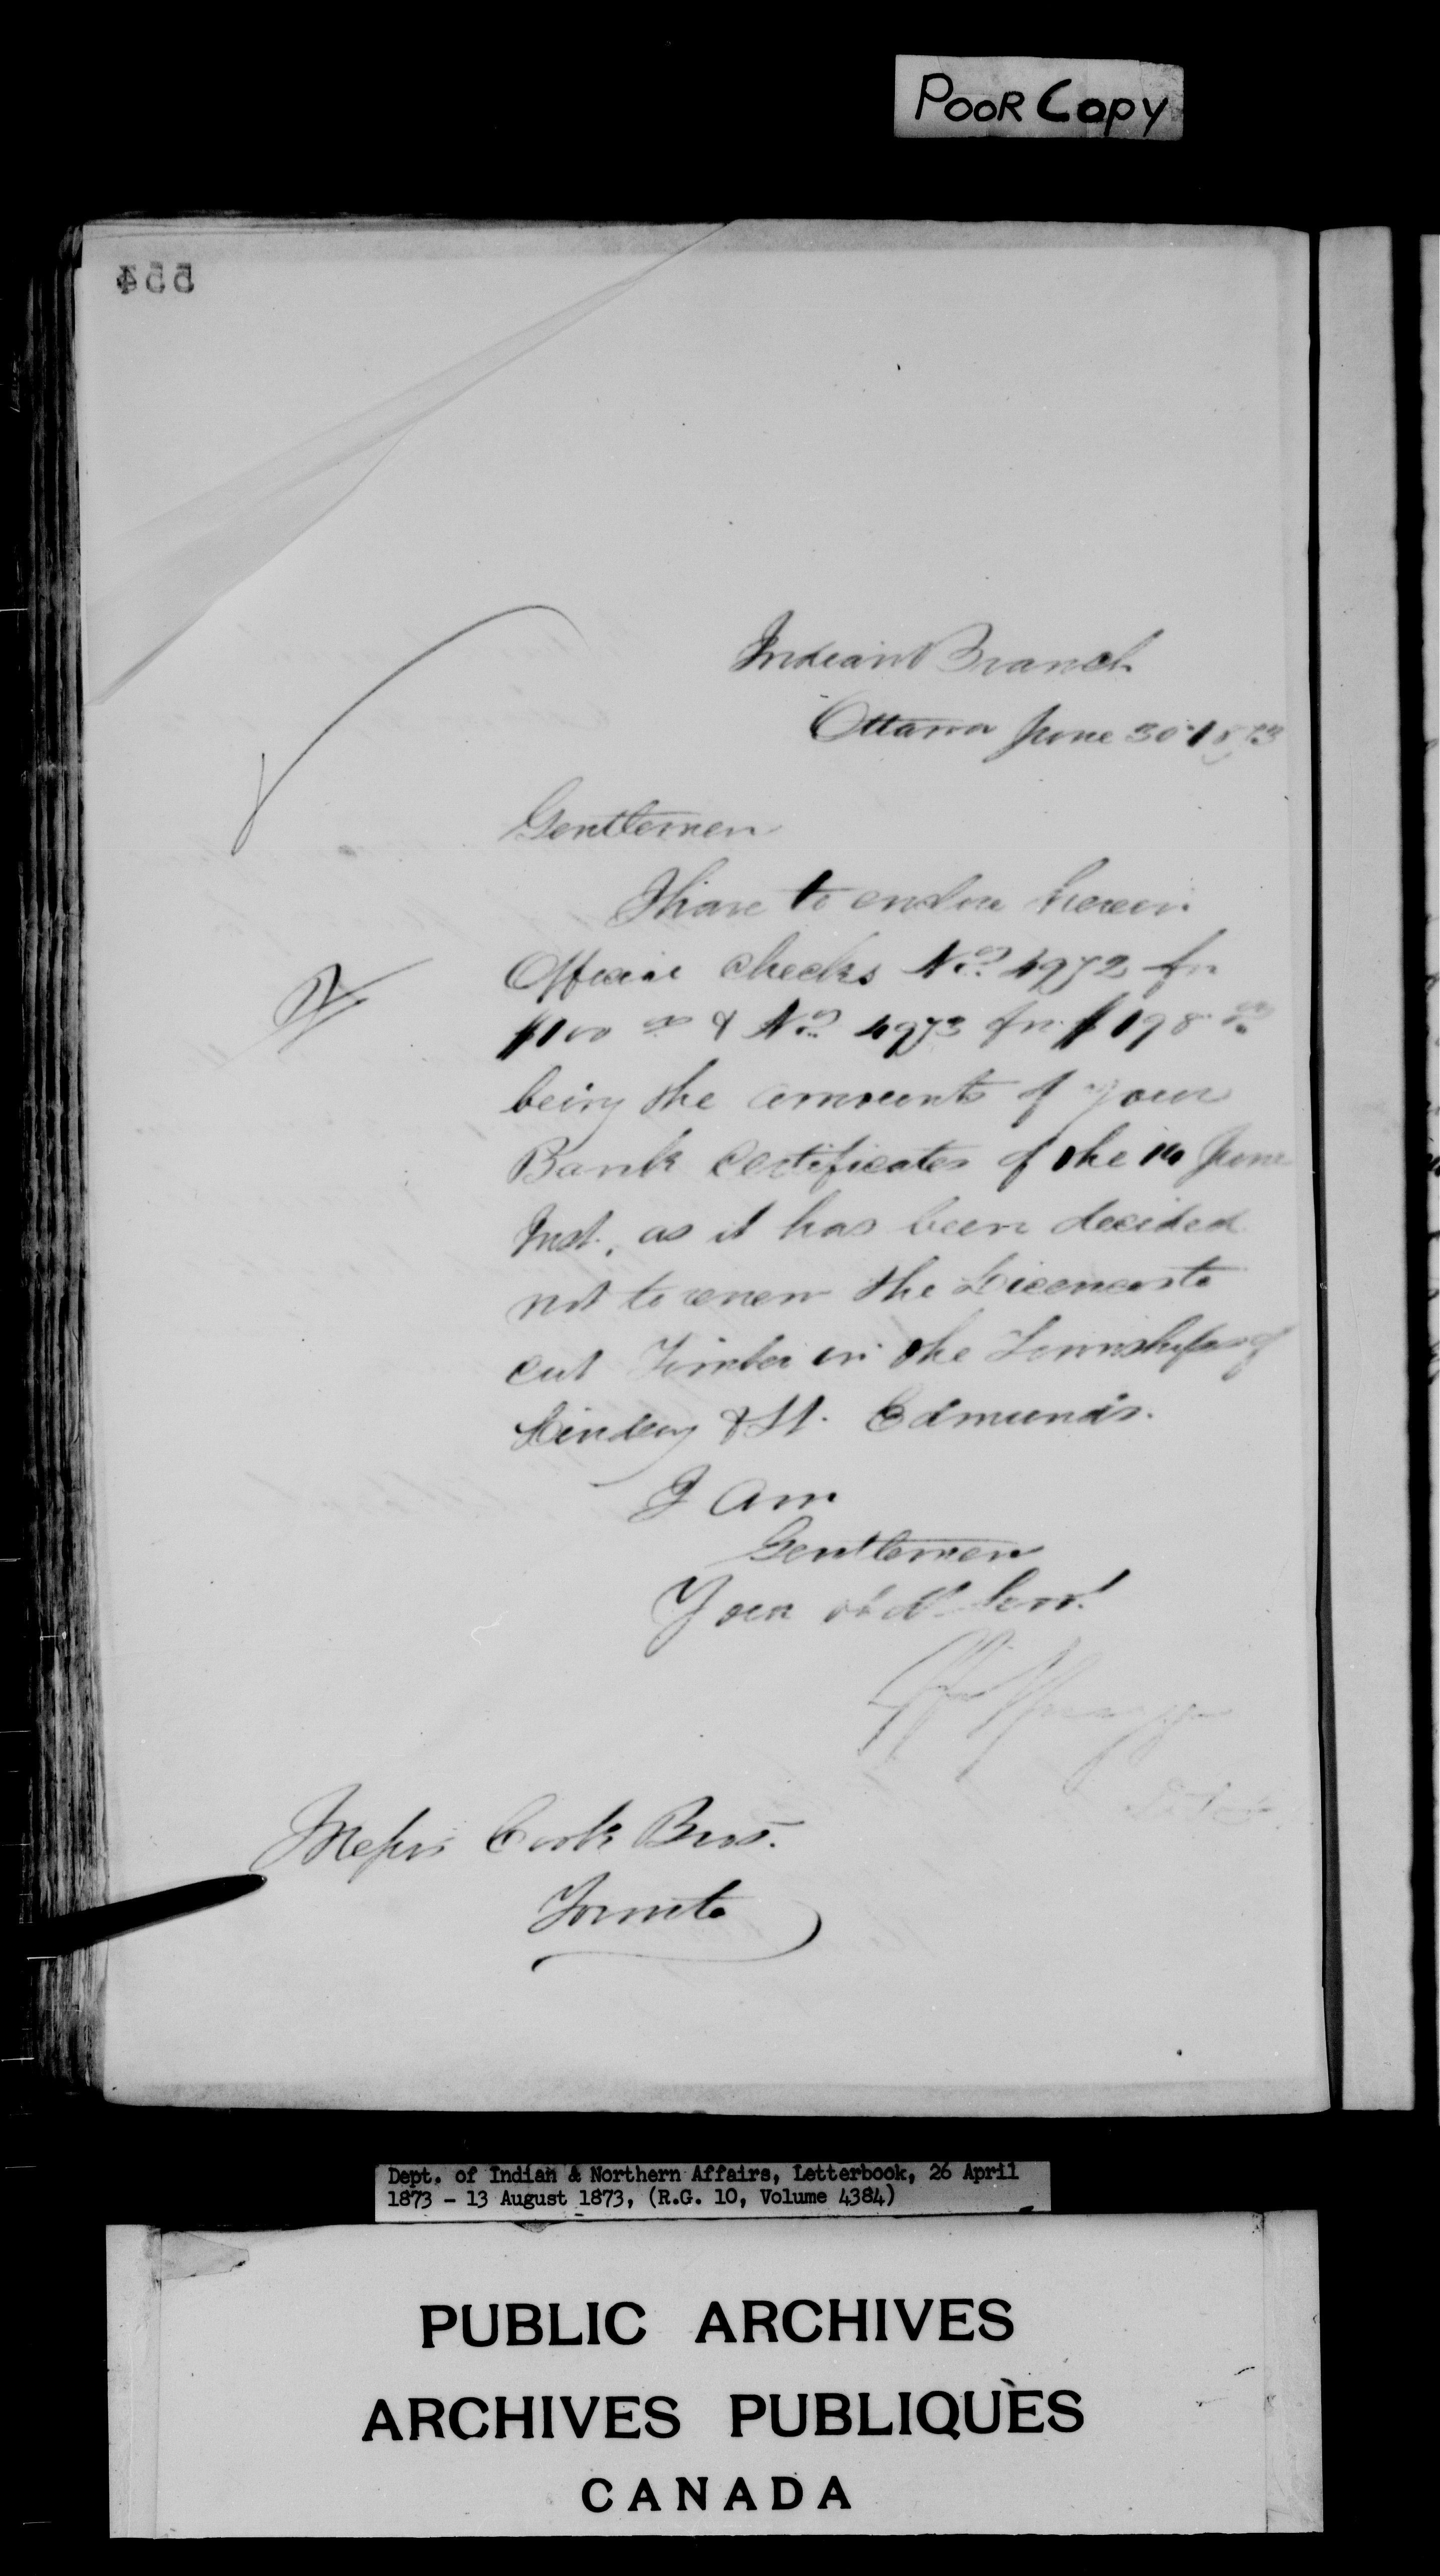 POOR Copy
554
Indian Branch
Ottawa June 30 1873
Gentlemen
I have to enclose herein
Official Checks No. 4972 for
$100 00 & No. 4973 for $198 00
being the amounts of your
Bank Certificates of the June
Inst., as it has been decided
not to renew the Licences to
cut Timber in the Townships of
Lindsay & St. Edmunds.
I am
Gentlemen
Your obdt. Servt.
Messrs Cook Bros.
Toronto
Dept. of Indian & Northern Affairs, Letterbook, 26 April
1873 - 13 August 1873, (R.G. 10, Volume 4384)
PUBLIC ARCHIVES
ARCHIVES PUBLIQUES
CANADA